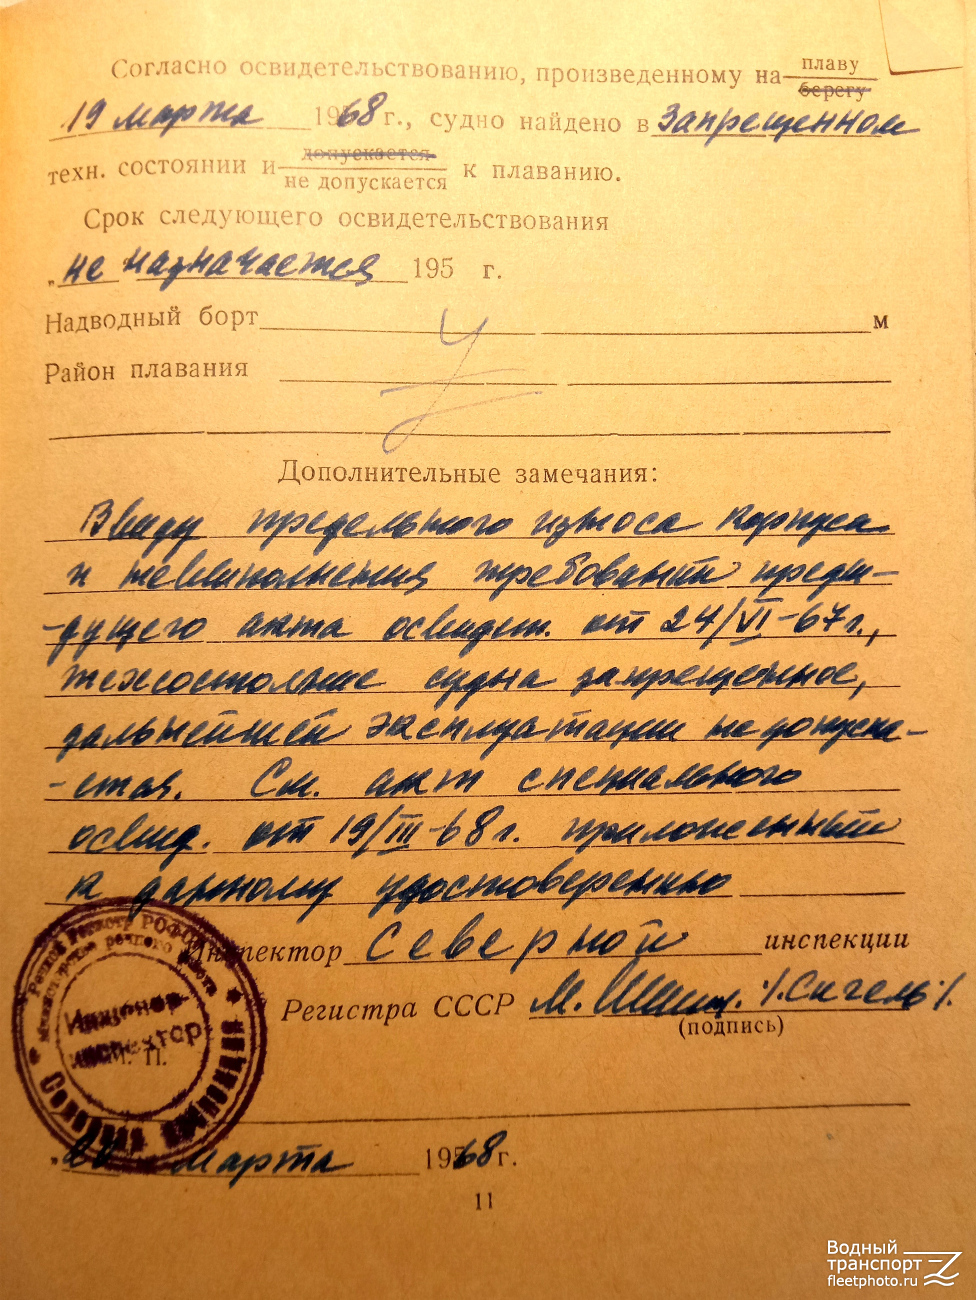 Согласно освидетельствованию, произведенному на плаву
берегу
19 марта 1968 г., судно найдено в запрещенном
допускается
техн. состоянии и не допускается к плаванию.
Срок следующего освидетельствования
„не назначается 195 г.
Надводный борт м
Район плавания
Дополнительные замечания:
Ввиду предельного износа корпуса
и невыполнения требований преды-
-дущего акта освидет. от 24/VI-67г.,
техсостояние судна запрещенное,
дальнейшей эксплуатации не допуска-
-ется. См. акт специального
освид. от 19/III-68г. приложенный
к данному удостоверению
Инспектор Северной инспекции
Регистра СССР М. /.Сигель/.
(подпись)
Речной Регистр РСФСР
Министерство речного флота
Инженер-
инспектор
М. П.
марта 1968 г.
11
Водный
транспорт
fleetphoto.ru